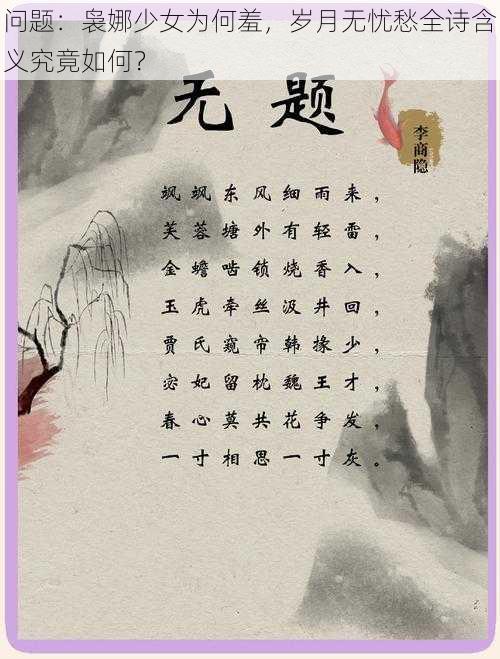 问题：袅娜少女为何羞，岁月无忧愁全诗含
义究竟如何？
无题
李商隐
飒飒东风细雨来，
芙蓉塘外有轻雷，
金蟾啮锁烧香入，
玉虎牵丝汲井回，
贾氏窥帘韩掾少，
宓妃留枕魏王才，
春心莫共花争发，
一寸相思一寸灰。